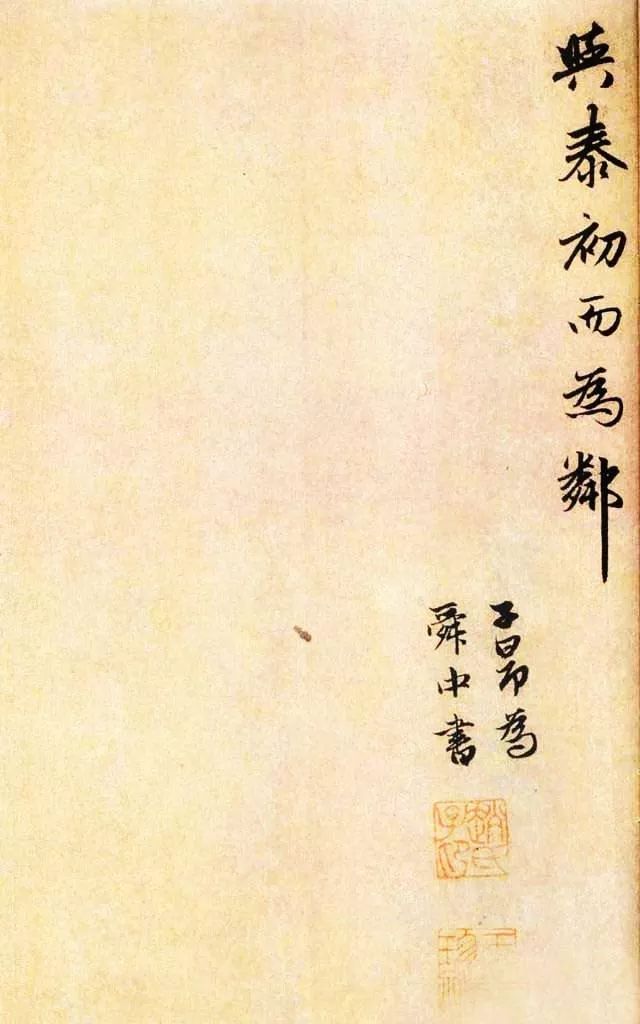 與泰初而為鄰
子昂為
舜中書
趙氏
子昂